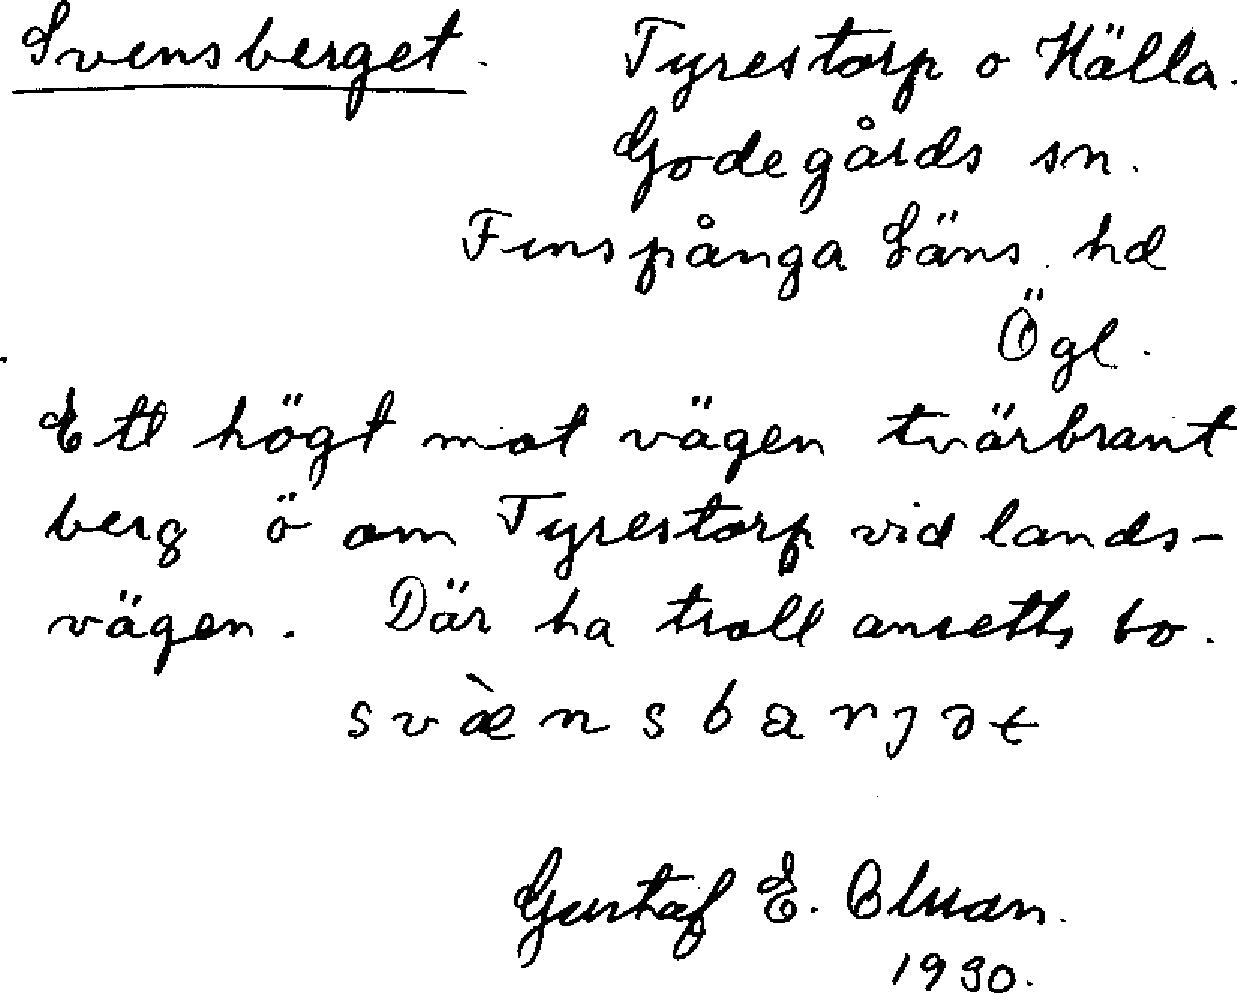 Svensberget. Tyrestorp o Hälla.
Godegårds sn.
Finspånga Läns hd
Ögl.
Ett högt mot vägen tvärbrant
berg ö om Tyrestorp vid lands-
vägen. Där ha troll ansetts bo.
svæ̀nsbarjət
Gustaf E.
1930.